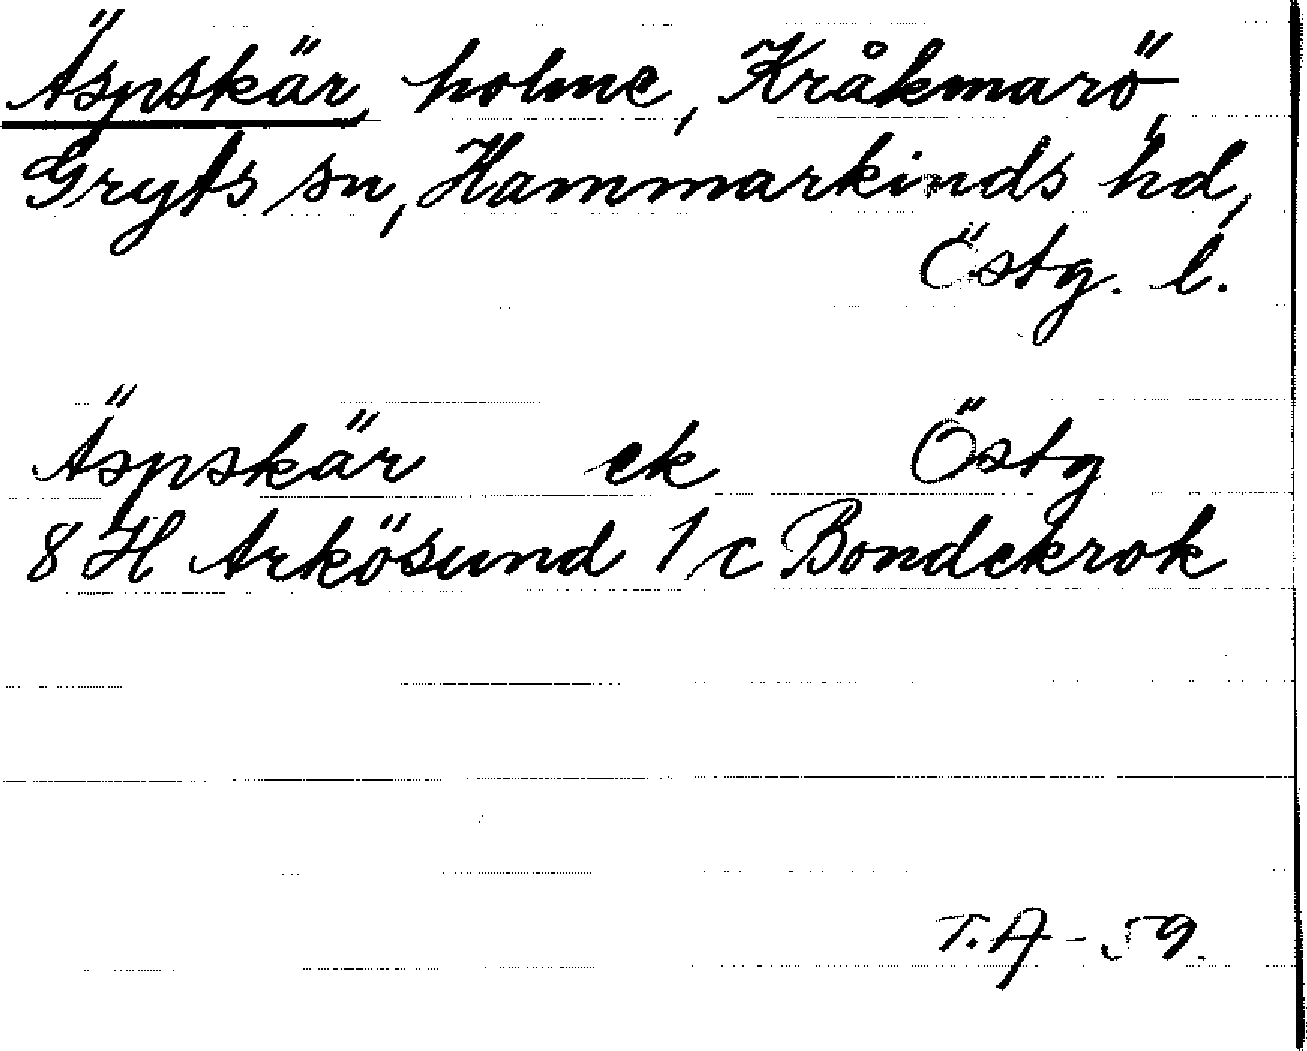 Äspskär, holme, Kråkmarö,
Gryts sn, Hammarkinds hd,
Östg. l.
Äspskär ek Östg
8 H Arkösund 1/c Bondekrok
T.A-59.